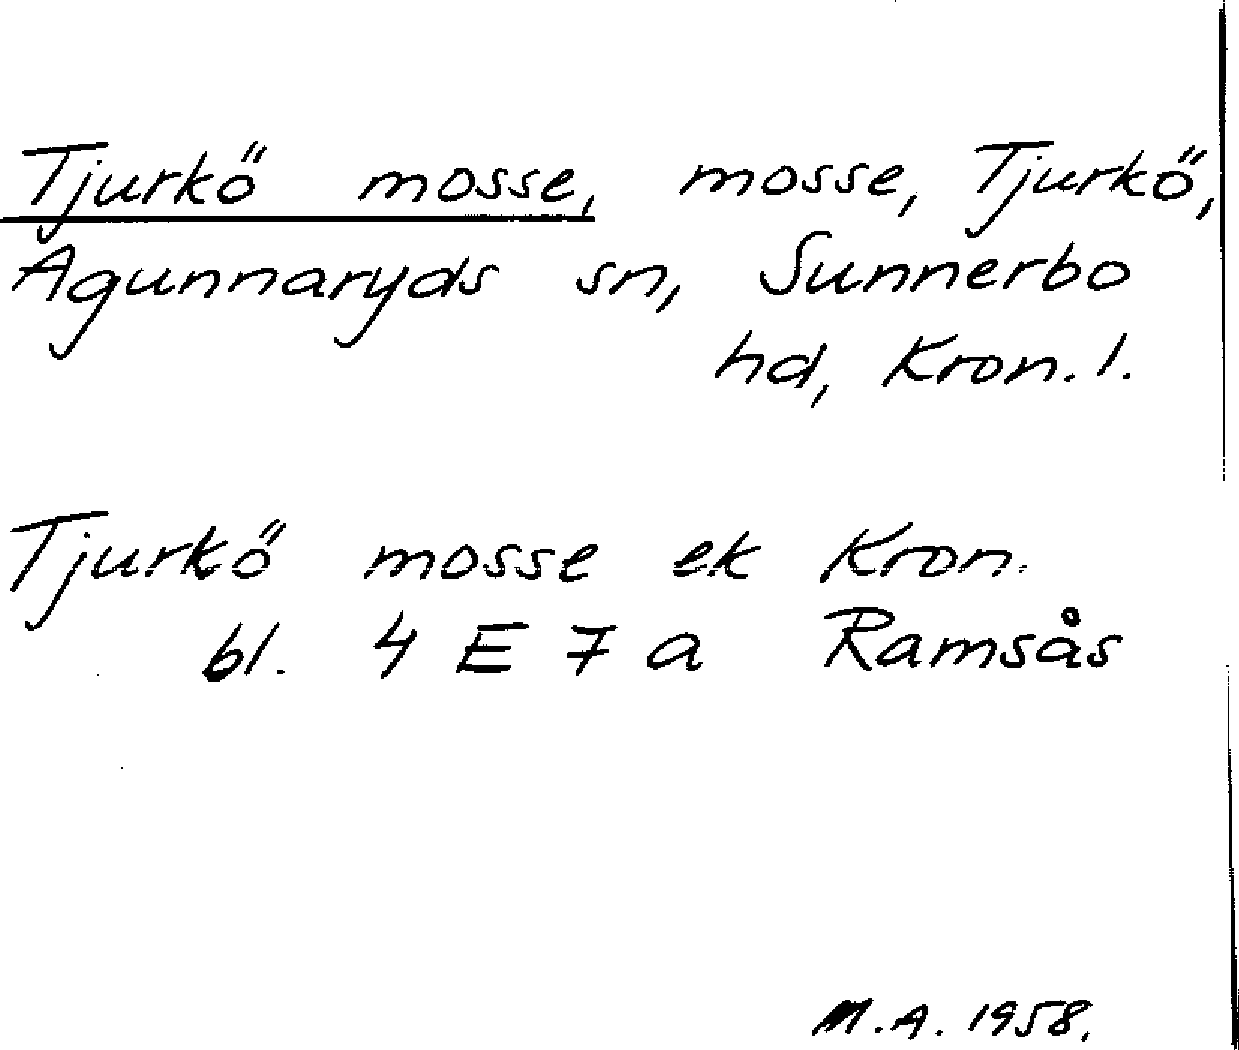 Tjurkö mosse, mosse, Tjurkö,
Agunnaryds sn, Sunnerbo
hd, Kron. l.
Tjurkö mosse ek Kron.
bl. 4 E 7 a Ramsås
M.A. 1958.